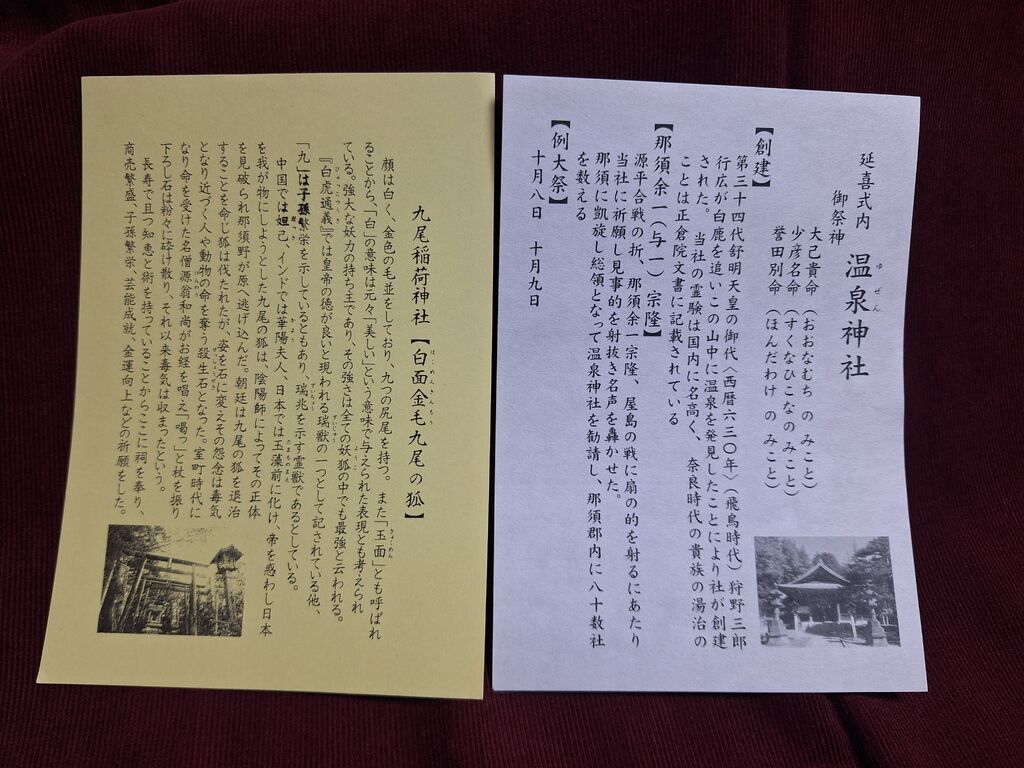 延喜式内 温泉神社
ゆぜん
御祭神
大己貴命（おおなむち の みこと）
少彦名命（すくなひこなのみこと）
誉田別命（ほんだわけ の みこと）
【創建】
第三十四代舒明天皇の御代〈西暦六三〇年〉（飛鳥時代）狩野三郎
行広が白鹿を追いこの山中に温泉を発見したことにより社が創建
された。 当社の霊験は国内に名高く、奈良時代の貴族の湯治の
ことは正倉院文書に記載されている
【那須余一（与一） 宗隆】
源平合戦の折、那須余一宗隆、屋島の戦に扇の的を射るにあたり
当社に祈願し見事的を射抜き名声を轟かせた。
那須に凱旋し総領となって温泉神社を勧請し、那須郡内に八十数社
を数える
【例大祭】
十月八日 十月九日
九尾稲荷神社【白面金毛九尾の狐】
はくめんきんもう
顔は白く、金色の毛並をしており、九つの尻尾を持つ。また「玉面」とも呼ばれ
ることから、「白」の意味は元々「美しい」という意味で与えられた表現とも考えられ
ている。強大な妖力の持ち主であり、その強さは全ての妖狐の中でも最強と云われる。
『白虎通義』では皇帝の徳が良いと現われる瑞獣の一つとして記されている他、
「九」は子孫繁栄を示しているともあり、瑞兆を示す霊獣であるとしている。
中国では妲己、インドでは華陽夫人、日本では玉藻前に化け、帝を惑わし日本
を我が物にしようとした九尾の狐は、陰陽師によってその正体
を見破られ那須野が原へ逃げ込んだ。朝廷は九尾の狐を退治
することを命じ狐は伐たれたが、姿を石に変えその怨念は毒気
となり近づく人や動物の命を奪う殺生石となった。室町時代に
なり命を受けた名僧源翁和尚がお経を唱え「喝っ」と杖を振り
下ろし石は粉々に砕け散り、それ以来毒気は収まったという。
長寿で且つ知恵と術を持っていることからここに祠を奉り、
商売繁盛、子孫繁栄、芸能成就、金運向上などの祈願をした。